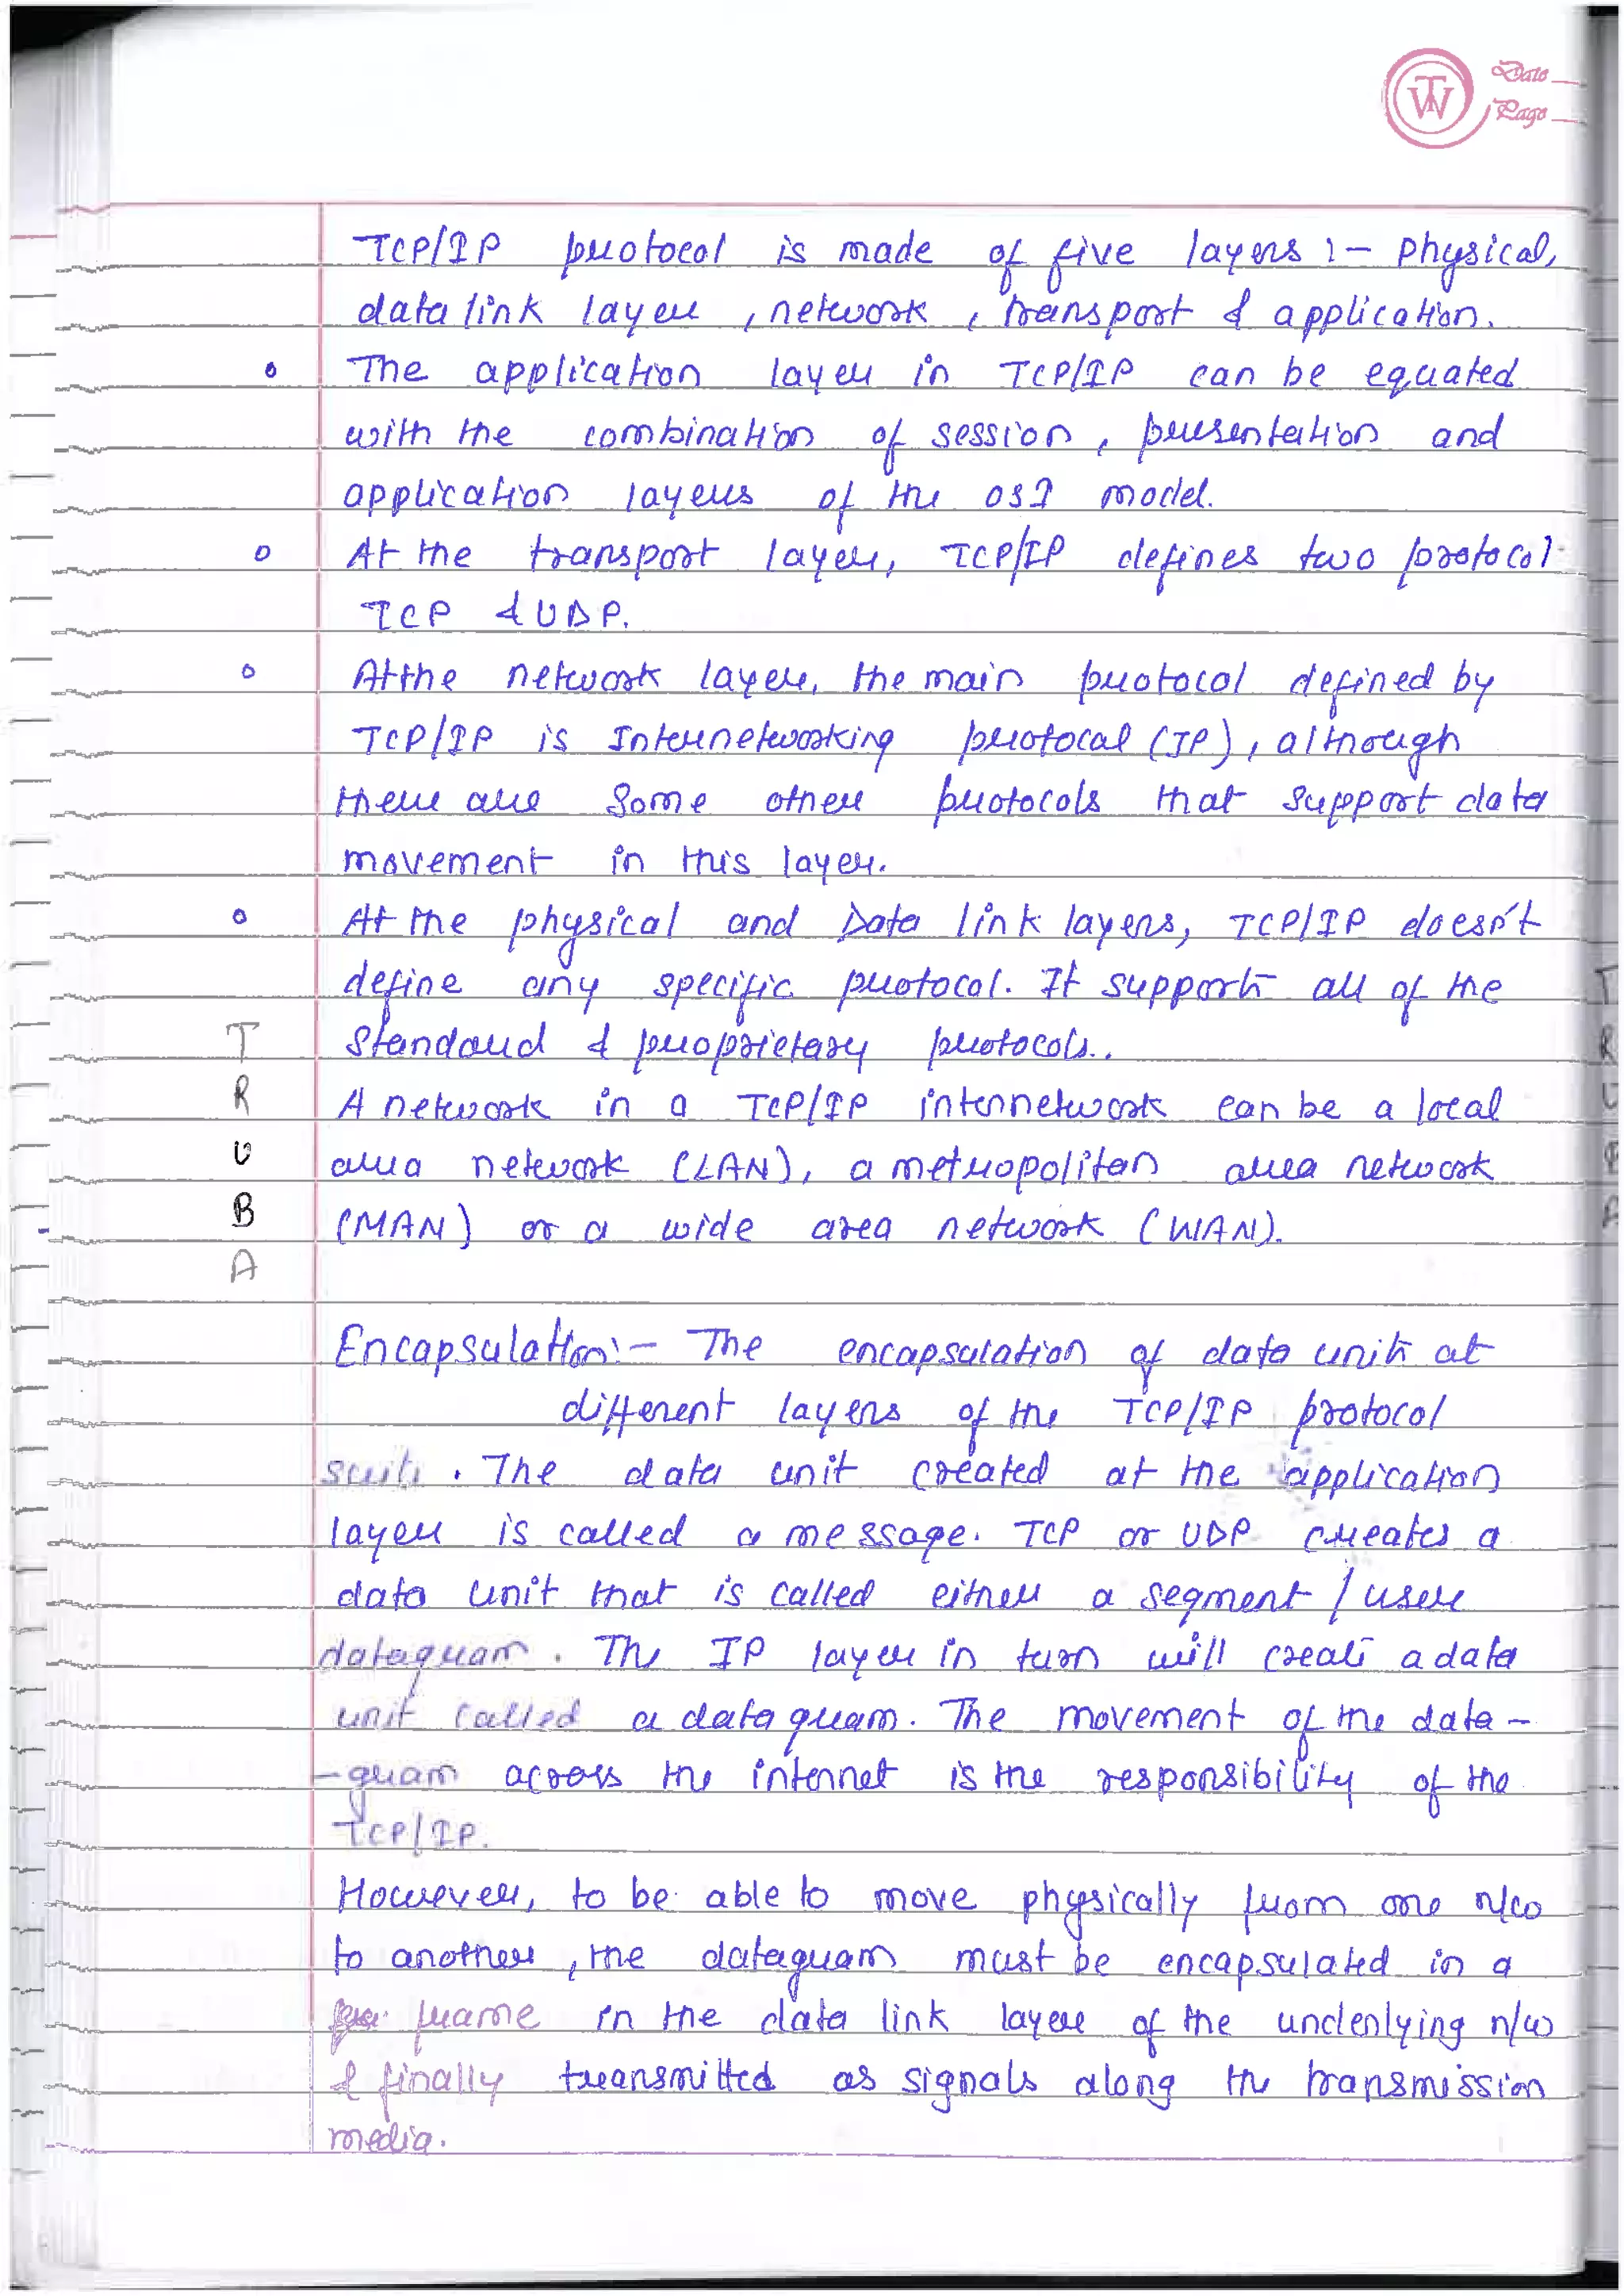 TW
Date
Page
TCP/IP protocol is made of five layers :- Physical,
data link layer , network , transport & application.
o The application layer in TCP/IP can be equated
with the combination of session , presentation and
application layers of the OSI model.
o At the transport layer, TCP/IP defines two protocol
TCP & UDP.
o At the network layer, the main protocol defined by
TCP/IP is Internetworking protocal (IP), although
there are some other protocols that support data
movement in this layer.
o At the physical and Data link layers, TCP/IP doesn't
define any specific protocol. It supports all of the
standard & proprietary protocols.
A network in a TCP/IP internetwork can be a local
area network (LAN), a metropolitan area network
(MAN) or a wide area network (WAN).
T
R
U
B
A
Encapsulation:- The encapsulation of data units at
different layers of the TCP/IP protocol
suite . The data unit created at the application
layer is called a message. TCP or UDP creates a
data unit that is called either a segment / user
datagram . The IP layer in turn will create a data
unit called a datagram. The movement of the data -
-gram across the internet is the responsibility of the
TCP/IP.
However, to be able to move physically from one n/w
to another , the datagram must be encapsulated in a
frame in the data link layer of the underlying n/w
& finally transmitted as signals along the transmission
media.